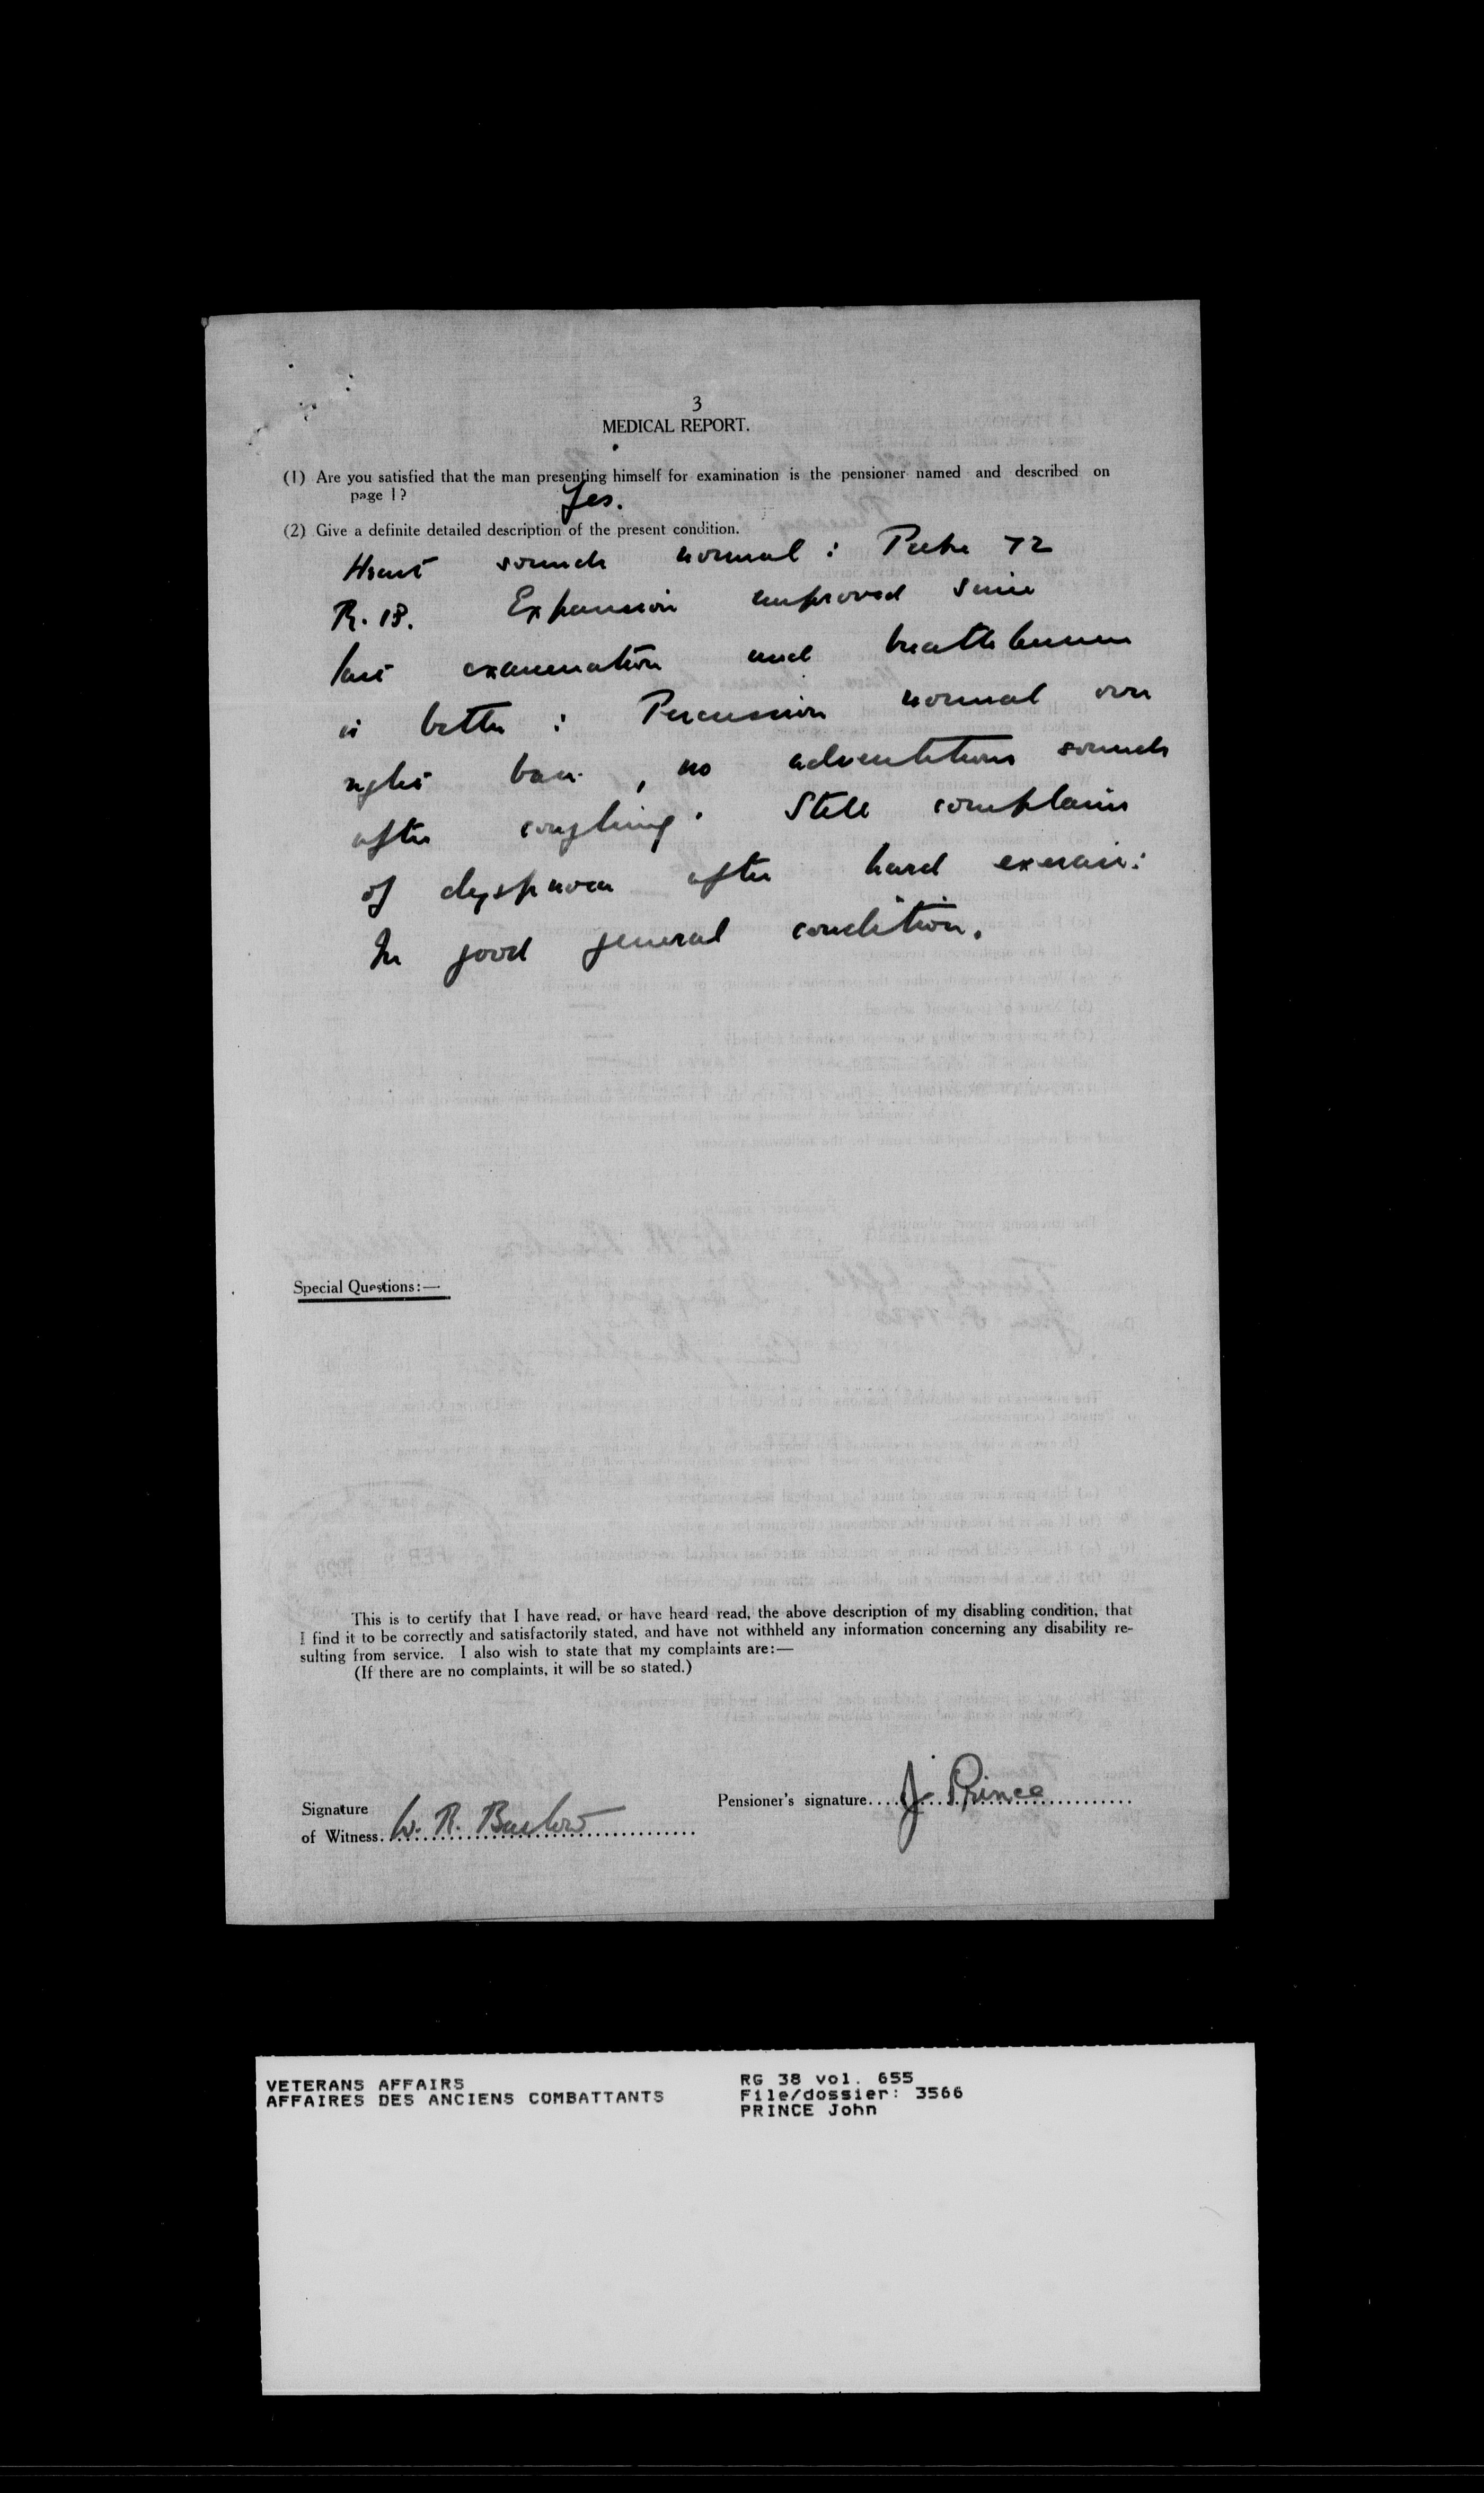 3
MEDICAL REPORT.
(1) Are you satisfied that the man presenting himself for examination is the pensioner named and described on
page 1?
Yes.
(2) Give a definite detailed description of the present condition.
Heart sounds normal : Pulse 72
R. 18. Expansion improved since
last examination and breath
is better : Percussion normal over
right base , no adventitious sounds
after coughing. Still complains
of dyspnoea after hard exercise:
In good general condition.
Special Questions:—
This is to certify that I have read, or have heard read, the above description of my disabling condition, that
I find it to be correctly and satisfactorily stated, and have not withheld any information concerning any disability re-
sulting from service. I also wish to state that my complaints are:—
(If there are no complaints, it will be so stated.)
Signature
of Witness. W. R. Barlow
Pensioner's signature.... J Prince
VETERANS AFFAIRS
AFFAIRES DES ANCIENS COMBATTANTS
RG 38 vol. 655
File/dossier: 3566
PRINCE John